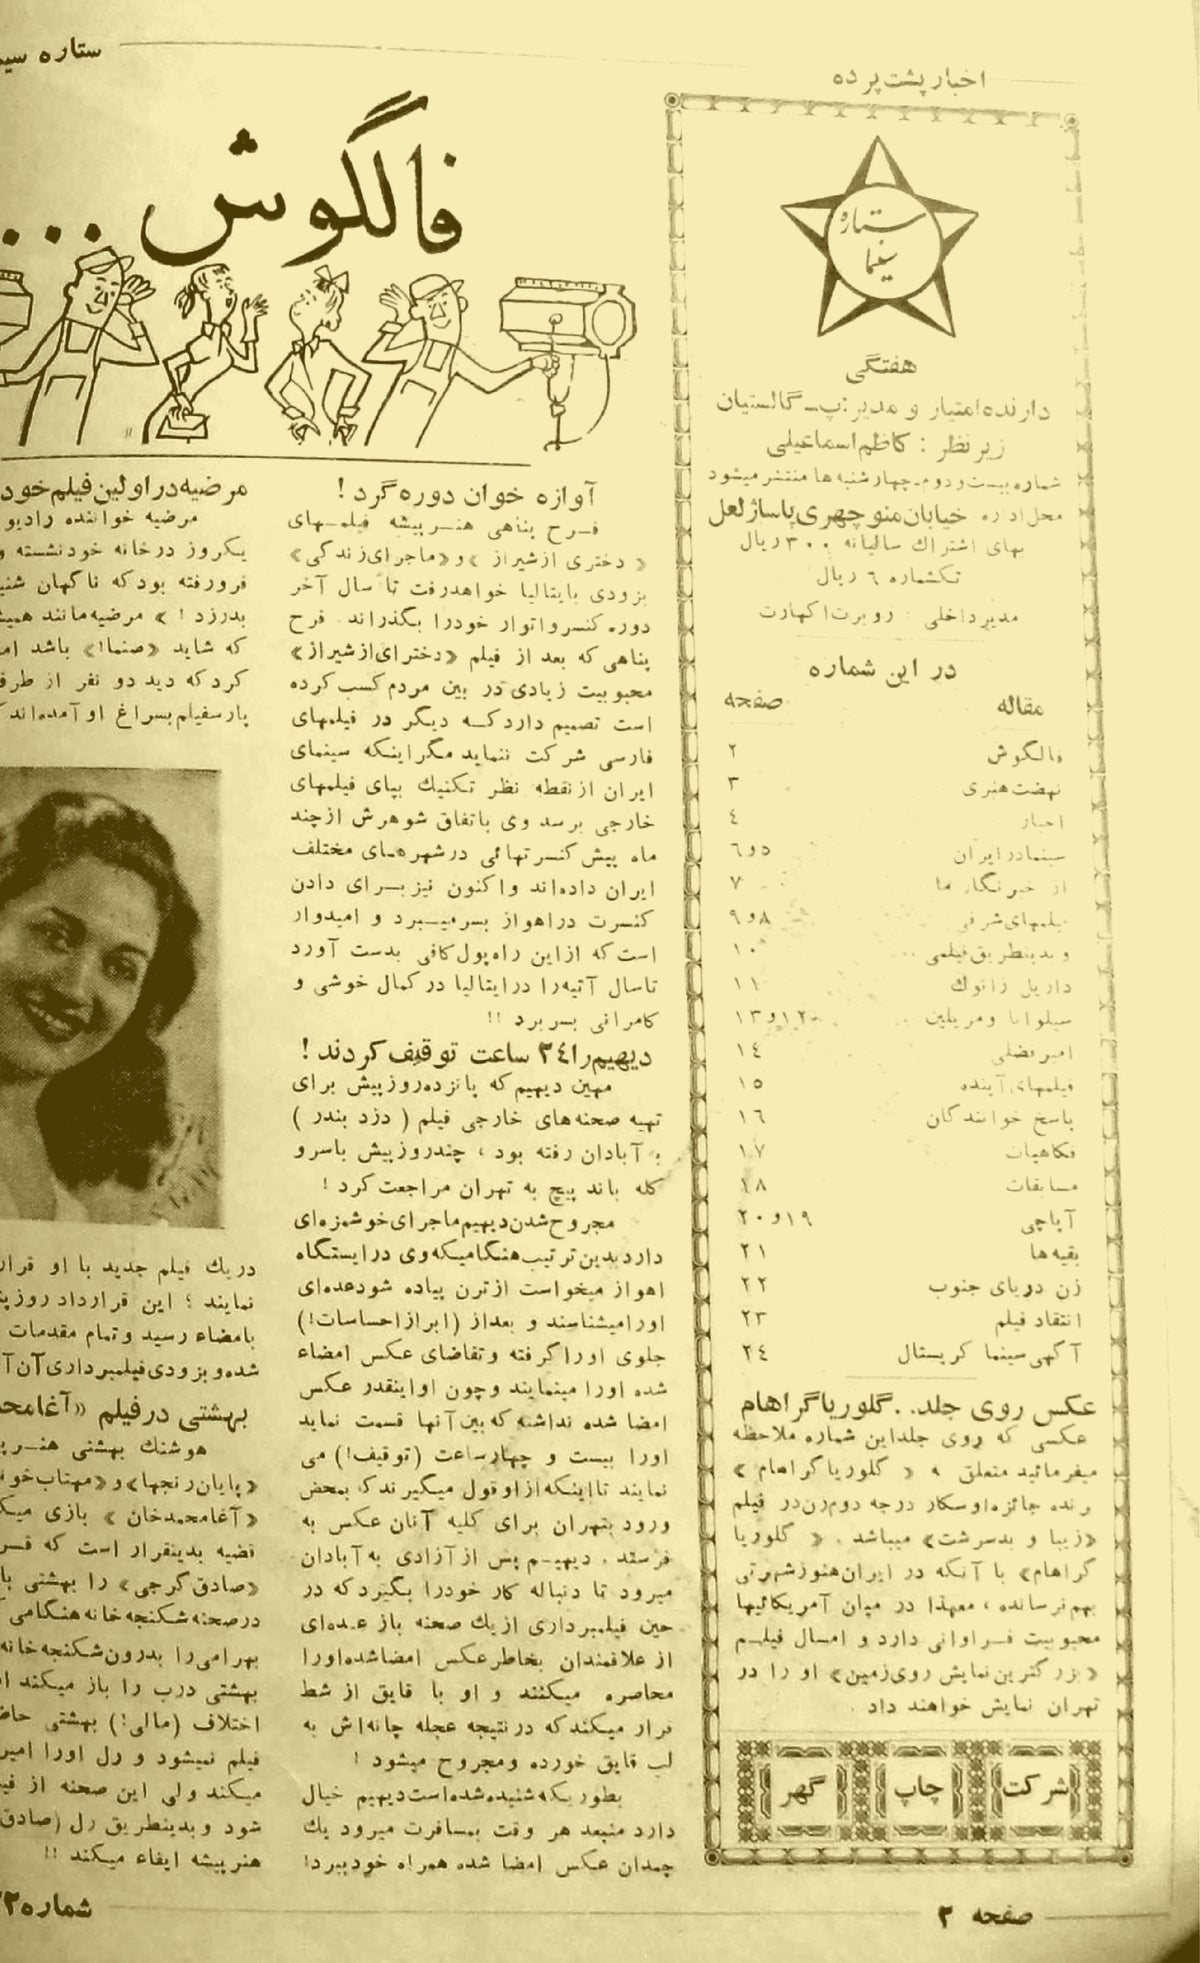 اخبار پشت پرده
ستاره سینما
هفتگی
دارنده امتیاز و مدیر: پ ـ گالستیان
زیر نظر : کاظم اسماعیلی
شماره بیست و دوم ـ چهارشنبه ها منتشر میشود
محل اداره: خیابان منوچهری پاساژ لعل
بهای اشتراك سالیانه ۳۰۰ ریال
تکشماره ٦ ریال
مدیر داخلی : روبرت اکهارت
در این شماره
مقاله صفحه
فالگوش ۲
نهضت هنری ۳
اخبار ٤
سینما در ایران ٥و٦
از خبرنگار ما ۷
فیلمهای شرقی ۸و۹
و بدینطریق فیلمی ... ۱۰
داریل زانوك ۱۱
سیلوانا و مریلین ... ۱۲و۱۳
امیر فضلی ۱٤
فیلمهای آینده ۱٥
پاسخ خوانندگان ۱٦
فکاهیات ۱۷
مسابقات ۱۸
آپاچی ۱۹و۲۰
بقیه ها ۲۱
زن دریای جنوب ۲۲
انتقاد فیلم ۲۳
آگهی سینما کریستال ۲٤
عکس روی جلد.. گلوریا گراهام
عکسی که روی جلد این شماره ملاحظه
میفرمائید متعلق به « گلوریا گراهام »
برنده جائزه اوسکار درجه دوم زن در فیلم
«زیبا و بدسرشت» میباشد . « گلوریا
گراهام» با آنکه در ایران هنوز شهرتی
بهم نرسانده ، معهذا در میان آمریکائیها
محبوبیت فراوانی دارد و امسال فیلم
«بزرگترین نمایش روی زمین» او را در
تهران نمایش خواهند داد .
شرکت چاپ گهر
ستاره سی
فالگوش ...
آوازه خوان دوره گرد !
فرح پناهی هنرپیشه فیلمهای
« دختری از شیراز » و «ماجرای زندگی»
بزودی بایتالیا خواهد رفت تا سال آخر
دوره کنسرواتوار خود را بگذراند. فرح
پناهی که بعد از فیلم «دختر ای از شیراز»
محبوبیت زیادی در بین مردم کسب کرده
است تصمیم دارد که دیگر در فیلمهای
فارسی شرکت ننماید مگر اینکه سینمای
ایران از نقطه نظر تکنیك بپای فیلمهای
خارجی برسد وی باتفاق شوهرش از چند
ماه پیش کنسرتهائی در شهرهای مختلف
ایران داده اند و اکنون نیز برای دادن
کنسرت در اهواز بسر میبرد و امیدوار
است که از این راه پول کافی بدست آورد
تا سال آتیه را در ایتالیا در کمال خوشی و
کامرانی بسر برد !!
دیهیم را ۲٤ ساعت توقیف کردند !
مهین دیهیم که پانزده روز پیش برای
تهیه صحنه های خارجی فیلم ( دزد بندر )
به آبادان رفته بود ، چند روز پیش با سر و
کله باند پیچ به تهران مراجعت کرد !
مجروح شدن دیهیم ماجرای خوشمزه ای
دارد بدین ترتیب هنگامیکه وی در ایستگاه
اهواز میخواست از ترن پیاده شود عده ای
او را میشناسند و بعد از (ابراز احساسات!)
جلوی او را گرفته و تقاضای عکس امضاء
شده او را مینمایند و چون او اینقدر عکس
امضا شده نداشته که بین آنها قسمت نماید
او را بیست و چهار ساعت (توقیف!) می
نمایند تا اینکه از او قول میگیرند که بمحض
ورود بتهران برای کلیه آنان عکس به
فرستد . دیهیم پس از آزادی به آبادان
میرود تا دنباله کار خود را بگیرد که در
حین فیلمبرداری از یك صحنه باز عده ای
از علاقمندان بخاطر عکس امضا شده او را
محاصره میکنند و او با قایق از شط
فرار میکند که در نتیجه عجله چانه اش به
لب قایق خورده و مجروح میشود !
بطوریکه شنیده شده است دیهیم خیال
دارد منبعد هر وقت بمسافرت میرود یك
چمدان عکس امضا شده همراه خود ببرد!
مرضیه در اولین فیلم خود
مرضیه خواننده رادیو
یکروز در خانه خود نشسته و
فرو رفته بود که ناگهان شنی
بدرزد ! » مرضیه مانند همیش
که شاید «صنما!» باشد اما
کرد که دید دو نفر از طرف
پارسفیلم بسراغ او آمده اند ک
در یك فیلم جدید با او قرار
نمایند ؛ این قرارداد روز پن
بامضاء رسید و تمام مقدمات
شده و بزودی فیلمبرداری آن آ
بهشتی در فیلم «آغا محم
هوشنك بهشتی هنرپی
«پایان رنجها» و «مهتاب خو
«آغا محمد خان » بازی میک
قضیه بدینقرار است که قسر
«صادق گرجی» را بهشتی با
در صحنه شکنجه خانه هنگامی
بهرامی را بدرون شکنجه خانه
بهشتی درب را باز میکند ا
اختلاف (مالی!) بهشتی حاض
فیلم نمیشود و رل او را امیر
میکند ولی این صحنه از فی
شود و بدینطریق رل (صادق
هنرپیشه ایفاء میکند !!
صفحه ۲
شماره ۲۲